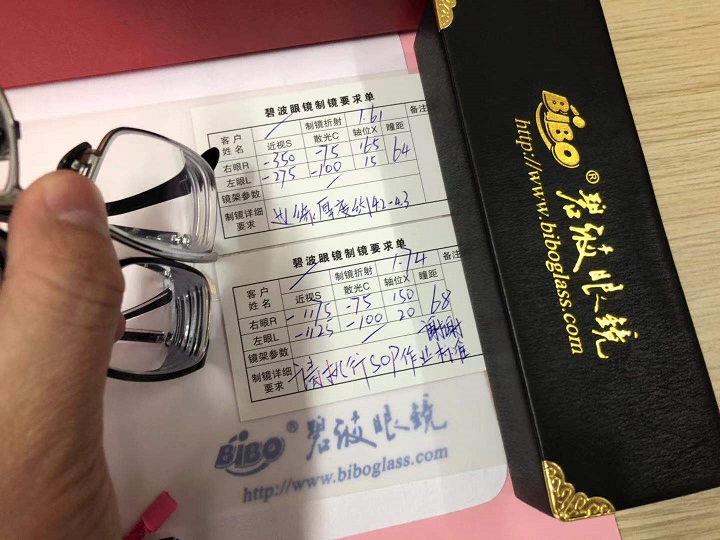 碧波眼镜制镜要求单
客户姓名 制镜折射 1.61 备注
近视S 散光C 轴位X 瞳距
右眼R -350 -75 165 64
左眼L -275 -100 15
镜架参数
制镜详细要求 边缘厚度约4.2-4.3
碧波眼镜制镜要求单
客户姓名 制镜折射 1.74 备注
近视S 散光C 轴位X 瞳距
右眼R -1175 -75 150 68
左眼L -1125 -100 20
镜架参数 谢谢
制镜详细要求 请执行SOP作业标准
BiBO® 碧波眼镜
http://www.biboglass.com
BiBO® 碧波眼镜
http://www.biboglass.com